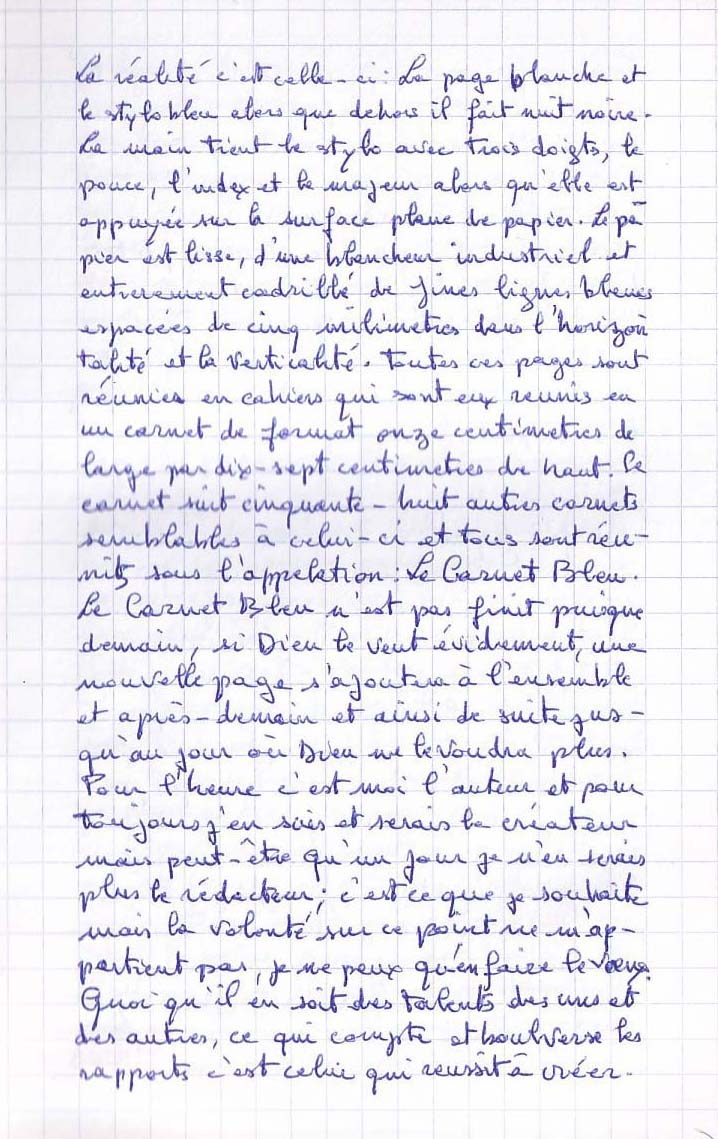 La réalité c'est celle-ci : La page blanche et
le stylo bleu alors que dehors il fait nuit noire.
La main tient le stylo avec trois doigts, le
pouce, l'index et le majeur alors qu'elle est
appuyée sur la surface plane de papier. Le pa
pier est lisse, d'une blancheur industriel et
entierement cadrillé de fines lignes bleues
espacées de cinq milimetres dans l'horizon
talité et la verticalité. Toutes ces pages sont
réunies en cahiers qui sont eux reunis en
un carnet de format onze centimetres de
large par dix-sept centimetres de haut. Ce
carnet suit cinquante-huit autres carnets
semblables à celui-ci et tous sont réu-
nis sous l'appelation : Le Carnet Bleu.
Le Carnet Bleu n'est pas finit puisque
demain, si Dieu le veut évidement, une
nouvelle page s'ajoutera à l'ensemble
et après-demain et ainsi de suite jus-
qu'au jour où Dieu ne le voudra plus.
Pour l'heure c'est moi l'auteur et pour
toujours j'en suis et serais le créateur
mais peut-être qu'un jour je n'en serais
plus le rédacteur ; c'est ce que je souhaite
mais la volonté sur ce point ne m'ap-
partient pas, je ne peux qu'en faire le voeux.
Quoi qu'il en soit des talents des uns et
des autres, ce qui compte et boulverse les
rapports c'est celui qui reussit à créer.